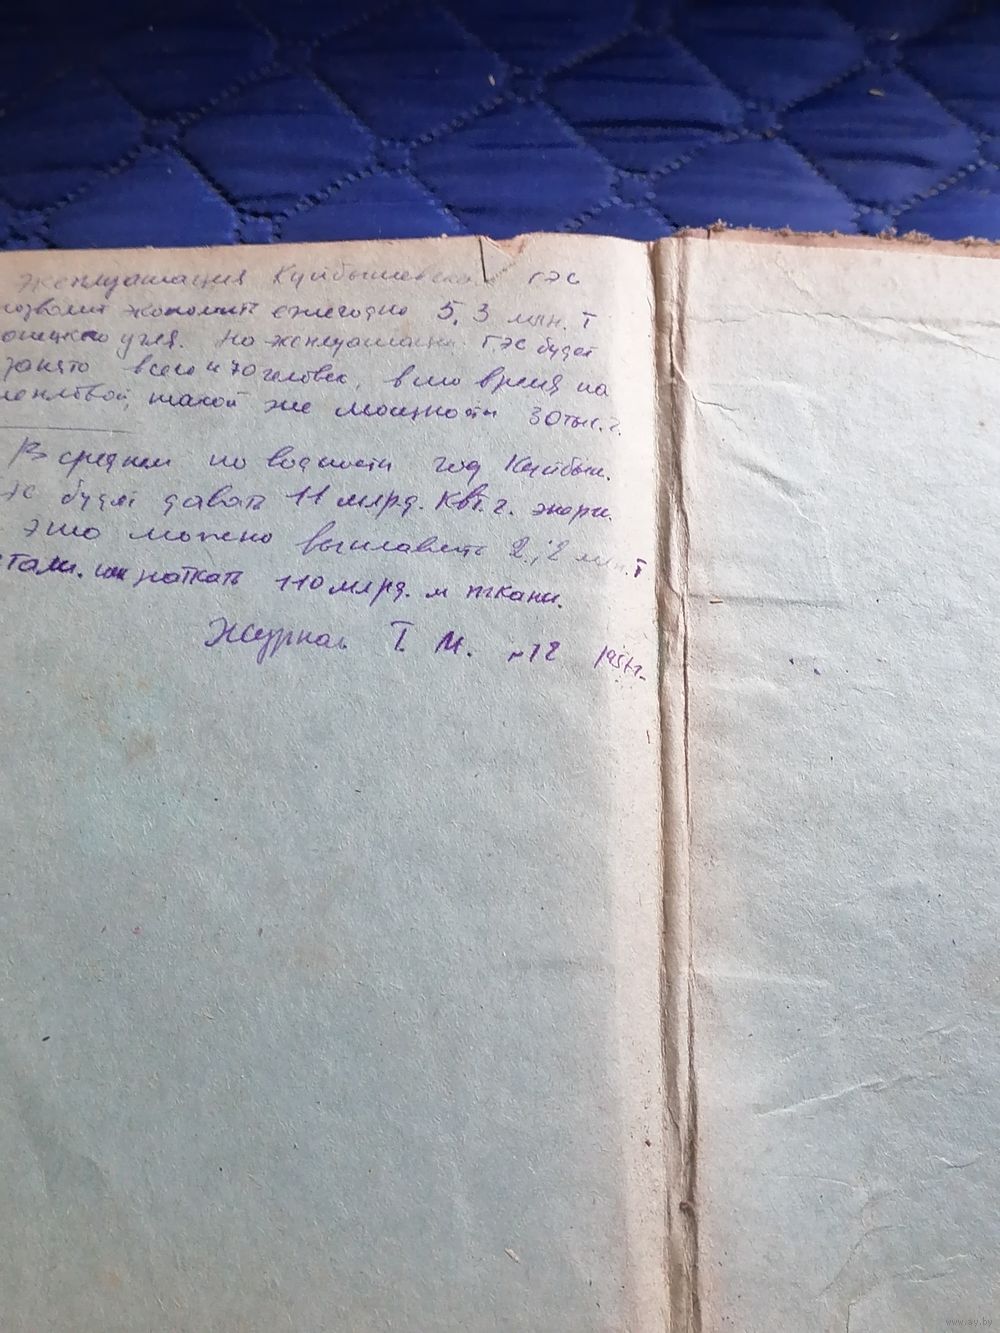 Эксплуатация Куйбышевско ГЭС
позволит экономить ежегодно 5,3 млн. т
онецкого угля. На эксплуатации ГЭС будет
занято всего 470 человек, в то время на
тепловой, такой же мощности 30 тыс. ч.
В средней по водности год Куйбыш.
ГЭС будет давать 11 млрд. квт. ч. энерги.
это можно выплавить 2,2 млн. т
стали. или наткать 110 млрд. м ткани.
Журнал Т. М. №12 195 г.
www.ay.by